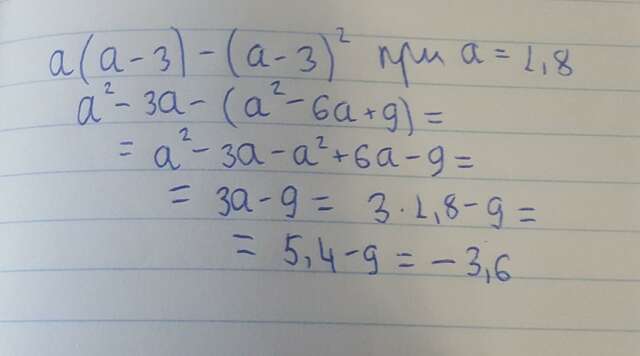 a(a-3)-(a-3)² при a=1,8
a²-3a-(a²-6a+9)=
=a²-3a-a²+6a-9=
=3a-9= 3·1,8-9=
=5,4-9=-3,6